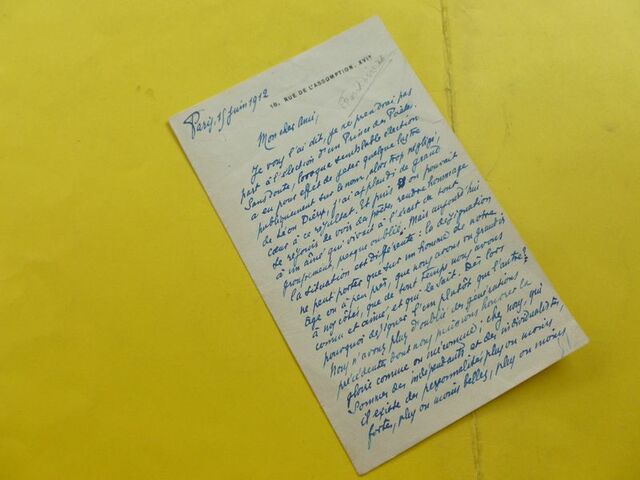 16, RUE DE L'ASSOMPTION. XVIe
Paris, 15 juin 1912
Mon cher ami,
Je vous l'ai dit, je ne prendrai pas
part à l'élection d'un Prince des Poètes.
Sans doute, lorsque semblable élection
a eu pour effet de jeter quelque lustre
publiquement sur le nom, alors trop négligé,
de Léon Dierx, j'ai applaudi de grand
cœur à ce résultat. Et puis on pouvait
se réjouir de voir des poètes rendre hommage
à un aîné qui vivait à l'écart en tout
presque oublié. Mais aujourd'hui
la situation est différente : la désignation
ne peut porter que sur un homme de notre
âge ou à peu près, que nous avons vu grandir
à nos côtés, que de tout temps nous avons
connu et aimé, et qui le sait. Dès lors
pourquoi désigner l'un plutôt que l'autre ?
Nous n'avons plus d'oublié des générations
précédentes dont nous puissions honorer la
gloire comme on méconnue ; chez nous, qui
sommes des indépendants et des individualistes,
il existe des personnalités plus ou moins
fortes, plus ou moins belles, plus ou moins